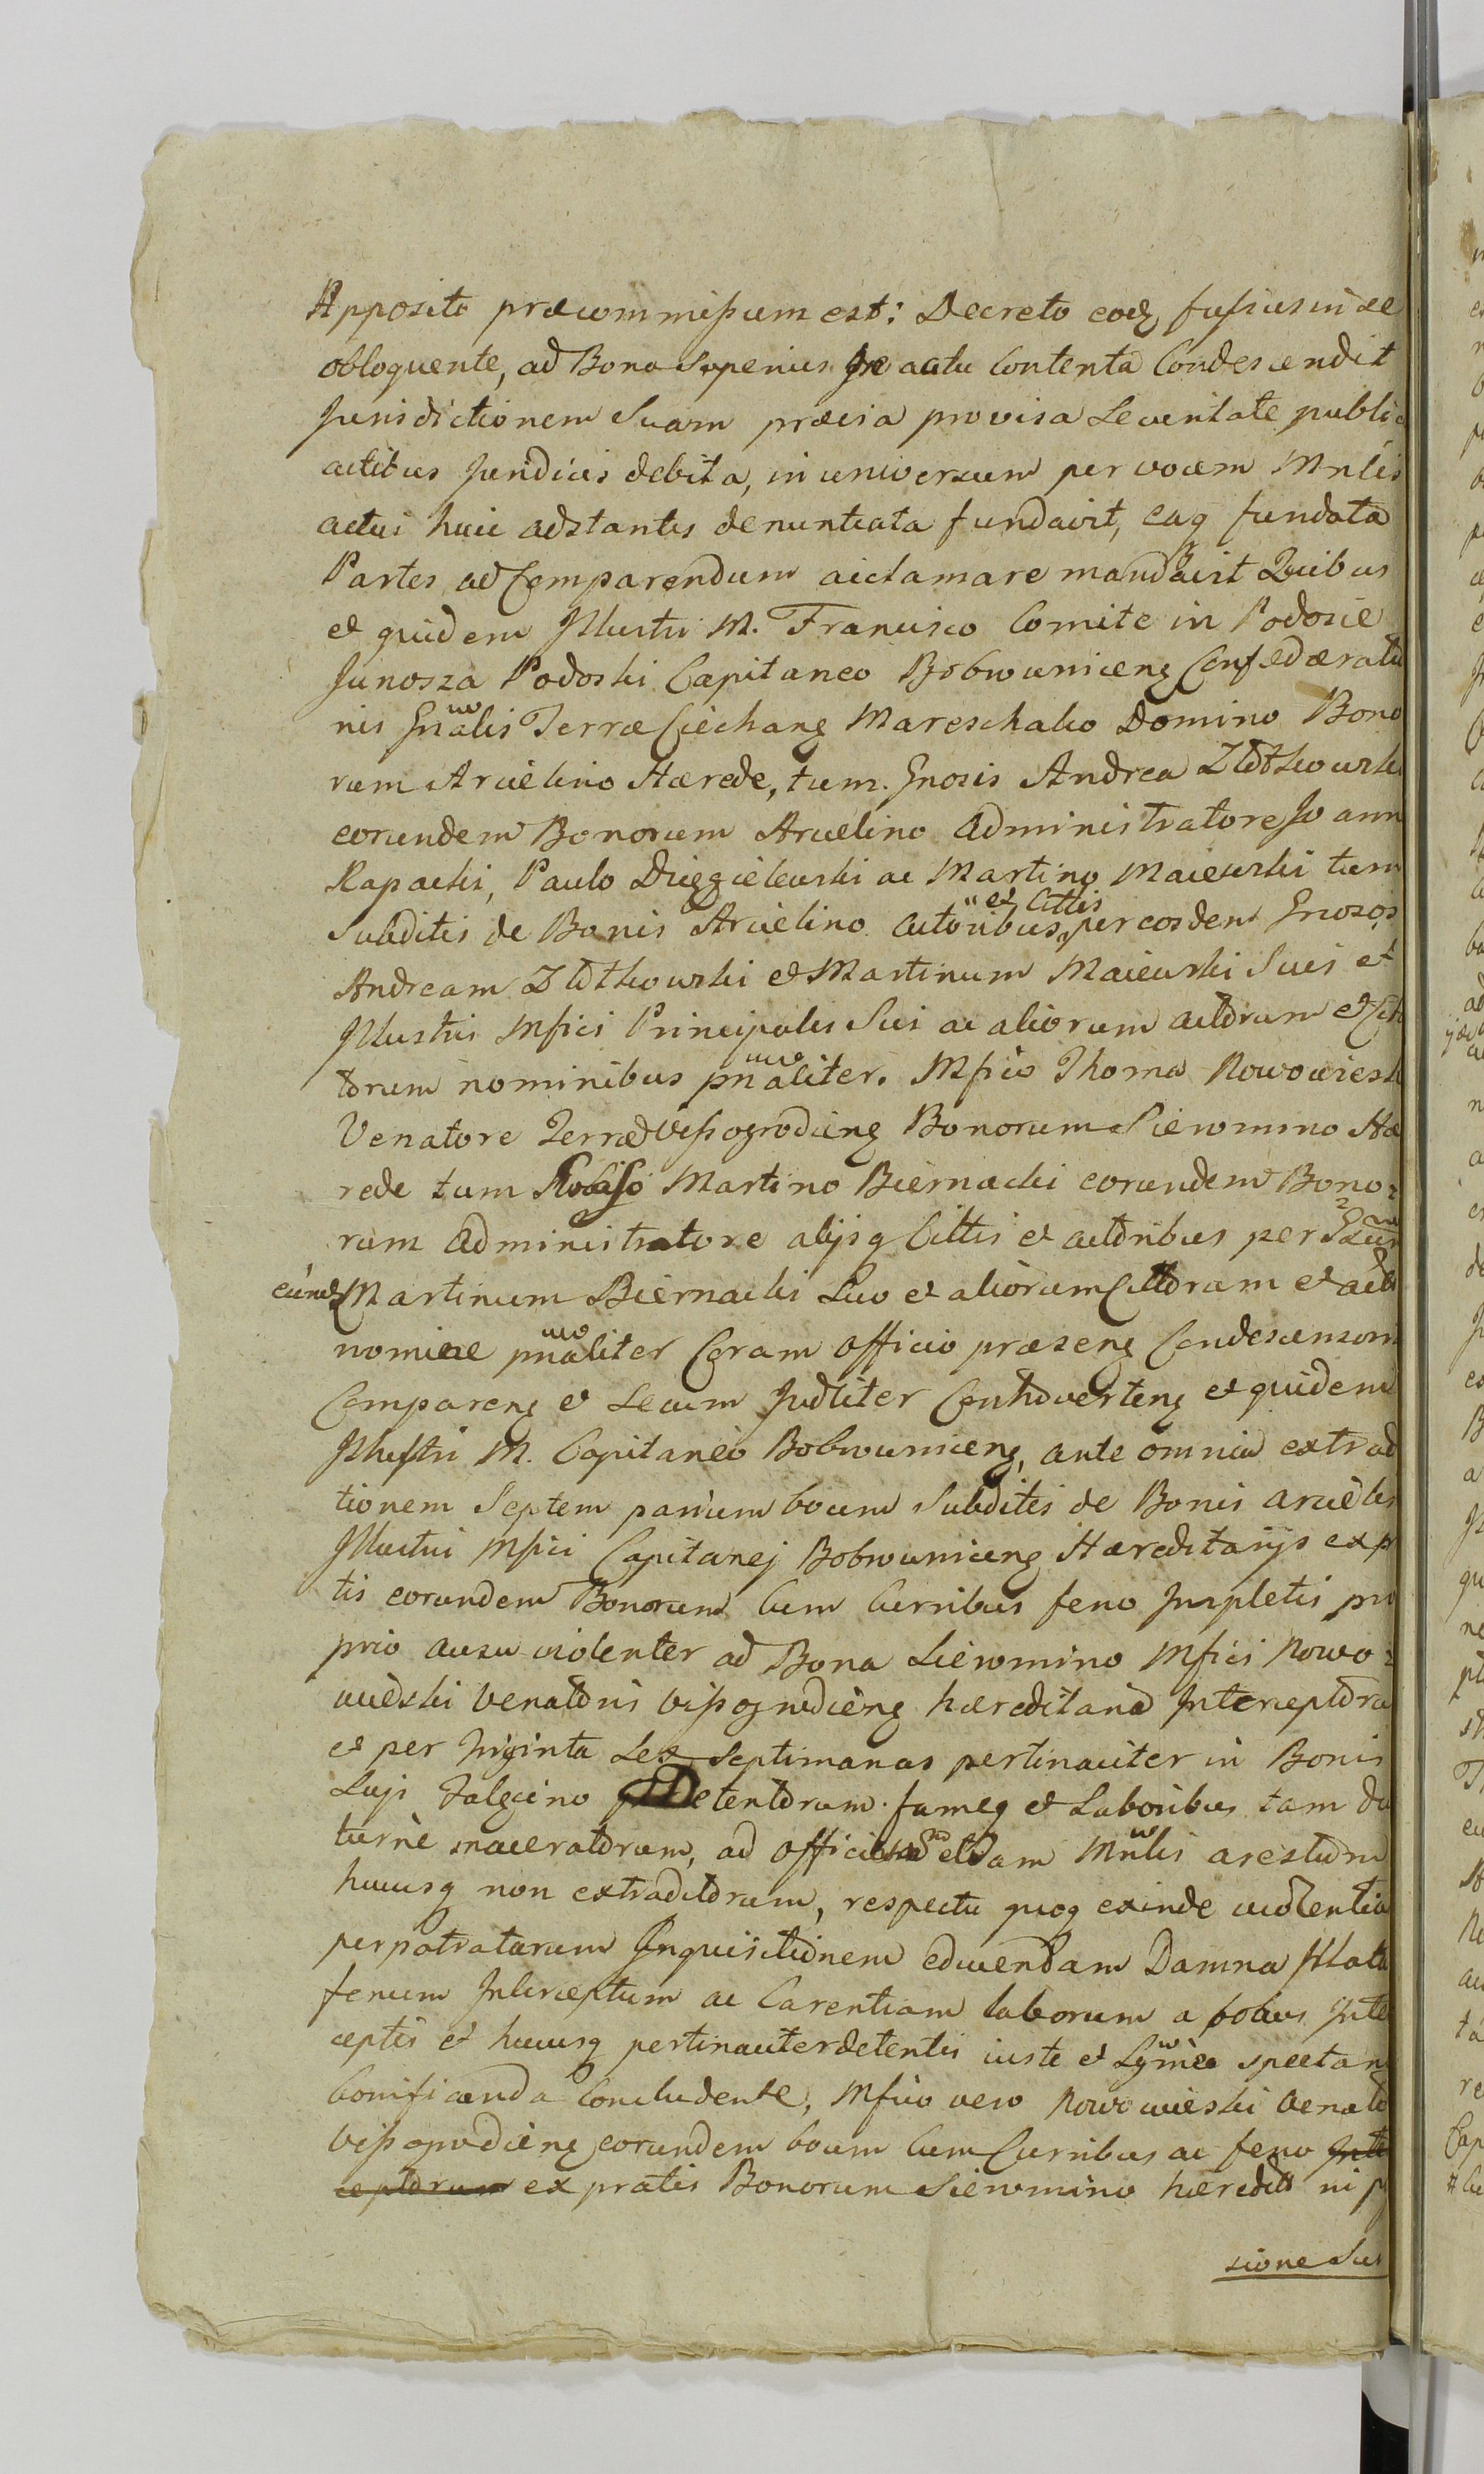 Apposite præcommissum est: Decreto eodq fusius in se
obloquente, ad Bona Superius In actu Contenta Condescendit
Jurisdictionem Suam prævia provisa Securitate public
actibus Juridicis debita, in universum per vocem Mnlis
actui huic adstantis denuntiata fundavit, eaq fundata
Partes ad Comparendum acclamare mandavit Quibus
et quidem Illustri M. Francisco Comite in Podosie
Junosza Podoski Capitaneo Bobrowniceng Confæderatio
nis Gnalis Terræ Ciechang Mareschalco Domino Bono
rum Arcielino Hærede, tum Gnosis Andrea Złotkowski
eorundem Bonorum Arcelino Administratore Joann
Rapacki, Paulo Dzięgielewski ac Martino Maiewski tum
Subditis de Bonis Arcielino actoribus et Cittis per eosdem Gnosos
Andream Złotkowski et Martinum Maiewski Suis et
Illustris Mfici Principalis Sui ac aliorum actorum et Cita
torum nominibus pnaliter. Mfico Thoma Nowowiesk
Venatore Terræ Vissogrodieng Bonorum Sieromino Hæ
rede tum Martino Biernacki eorundem Bono
rum Administratore alijsq Cittis et actoribus per
eund Martinum Biernacki Suo et aliorum Cittorum et act
nomine pnaliter Coram officio præseng Condescensori
Compareng et Secum Judliter Controverteng et quidem
Illustri M. Capitaneo Bobrowniceng, ante omnia extradi
tionem Septem parium boum Subditis de Bonis Arcieli
Illustri Mfici Capitanej Bobrowniceng Hæreditarijs ex pr
tis eorundem Bonorum Cum Curribus feno Impletis pro
prio ausu violenter ad Bona Sieromino Mfici Nowo
wieski Venatoris Vissogrodieng hæreditaria Interceptoru
et per triginta Sex Septimanas pertinaciter in Bonis
Suis Galęcino Detentorum fameq et Laboribus tam du
turne maceratorum, ad officiosam Mnlis arestum
hucusq non extraditorum, respectu quoq exinde violentia
perpetratarum Inquisitionem educendam Damna Illata
fenum Interceptum ac Carentiam laborum a bobus Inter
ceptis et hucusq pertinaciter detentis iuste et Lgmice spectan
bonificanda Concludente, Mfico vero Nowowieski Venato
Vissogrodieng eorundem boum Cum Curribus ac feno Inter
ceptorum ex pratis Bonorum Sieromino hæredit ni p
sione Sua